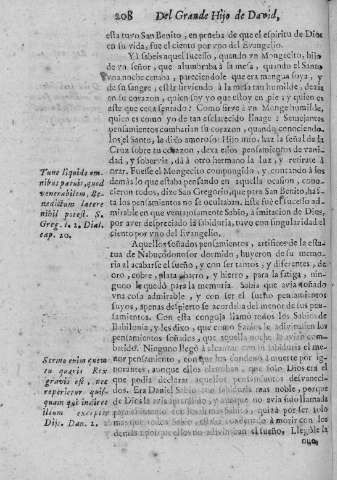 208 Del Grande Hijo de David,
esta tuvo San Benito, en prueba de que el espiritu de Dios
en su vida, fue el ciento por vno del Evangelio.
Yà sabeis aquel sucesso, quando vn Mongecito, hijo
de vn señor, que alumbraba à la mesa, quando el Santo
vna noche cenaba, pareciendole que era mengua suya, y
de su sangre, estar sirviendo à la mesa tan humilde, dezia
en su corazon, quien soy yo que estoy en pie; y quien es
este que està sentado? Como sirvo à vn Monge humilde,
quien es como yo de tan esclarecido linage? Semejantes
pensamientos combatian su corazon, quando conociendo
los el Santo, le dixo amoroso: Hijo mio, haz la señal de la
Cruz sobre tu corazon, dexa essos pensamientos de vanidad,
y sobervia, dà à otro hermano la luz, y retirate à
orar. Fuesse el Mongecito compungido, y contando à los
demàs lo que estaba pensando en aquella ocasion, conocieron
todos, dize San Gregorio, que para San Benito, hasta
los pensamientos no estaban ocultos. Este fue el sucesso admirable
en que ventajosamente Sabio, à imitacion de Dios,
por aver despreciado la sabiduria, tuvo con singularidad el
ciento por vno del Evangelio.
Tunc liquido omnibus
patuit, quod
venerabilem, Benedictum
latere
nihil potest. S.
Greg. l. 2. Dial.
cap. 20.
Aquellos soñados pensamientos, artifices de la estatua
de Nabucodonosor dormido, huyeron de su memoria
al acabarse el sueño, y con ser tantos, y diferentes, de
oro, cobre, plata, barro, y hierro, para la fatiga, ninguno
le quedò para la memoria. Sabia que avia soñado
vna cosa admirable, y con ser el sueño pensamientos
suyos, apenas despierto se acordaba del menor de sus pensamientos.
Con esta congoja llamò todos los Sabios de
Babilonia, y les dixo, que como Sabios le adivinassen los
pensamientos soñados, que aquella noche le avian
Ninguno llegò à con la sabiduria el menor
pensamiento, con que los condenò à muerte por ignorantes,
aunque ellos que solo Dios era el
que podia declarar aquellos pensamientos desvanecidos.
Era Daniel Sabio sabiduria mas noble, porque
de Dios la avia aprendido, y aunque no avia sido llamada
con los demàs Sabios, quizà por ser solo
mas que todos Sabio, estaba condenado à morir con los
demàs porque ellos no adivinaban el sueño. Llegòle la
Sermo enim quem
tu quæris Rex
gravis est, nec
reperietur quisquam
qui indicet
illum exceptis
Dijs. Dan. 2.